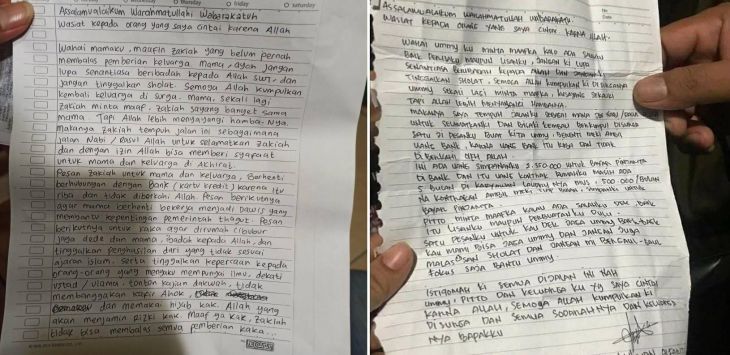 Thursday
friday
saturday
Assalamualaikum Warahmatullahi Wabarakatuh
Wasiat kepada orang yang saya cintai karena Allah
Wahai mamaku, maafin zakiah yang belum pernah
membalas pemberian keluarga. mama, ayah jangan
lupa senantiasa beribadah kepada Allah SWT, dan
jangan tinggalkan sholat. Semoga Allah kumpulkan
kembali keluarga di surga. mama, sekali lagi
zakiah minta maaf. zakiah sayang banget sama
mama. Tapi Allah lebih menyayangi hamba-Nya.
makanya zakiah tempuh jalan ini sebagaimana
jalan Nabi / Rasul Allah untuk selamatkan zakiah
dan dengan izin Allah bisa memberi syafaat
untuk mama dan keluarga di Akhirat.
Pesan zakiah untuk mama dan keluarga, Berhenti
berhubungan dengan bank (kartu kredit) karena itu
riba dan tidak diberkahi Allah. Pesan berikutnya
agar mama berhenti bekerja menjadi Dawis yang
membantu kepentingan pemerintah thagut. Pesan
berikutnya untuk kaka agar dirumah cibubur
jaga dede dan mama, ibadah kepada Allah, dan
tinggalkan penghasilan dari yang tidak sesuai
ajaran islam. serta tinggalkan kepercayaan kepada
orang-orang yang mengaku mempunyai ilmu, dekati
ustad / ulama, tonton kajian dakwah, tidak
membanggakan kafir Ahok,
dan memakai hijab kak. Allah yang
akan menjamin Rizki kak. maaf ya kak, zakiah
tidak bisa membalas semua pemberian kaka...
No
Date
Assalamualaikum Warahmatullah Wabarakatu.
Wasiat kepada orang yang saya cinta karna Allah.
Wahai ummy ku minta maafka kalo ada salahku
baik perilaku maupun lisanku, jangan ki lupa
senantiasa beribadah kepada Allah dan
tingalkan sholat, semoga Allah kumpulkan ki
ummy sekali lagi minta maafka,
tapi Allah lebih menyayangi hambanya.
makanya saya tempuh jalanku
untuk selamatkanku dan
satu ji pesanku buat kita ummy berenti maki
uang bank, karna uang bank itu riba dan tidak
di berkati oleh Allah
ini ada uang 2.350.000 untuk
di bank dan itu uang kontrak rumahku masih ada
5 bulan di 500.000/bulan
Pitto minta maafka kalau ada salahku
itu lisanku maupun perbuatanku dulu
satu pesanku untuk kau dek jaga ummy baik-baik
kau mami bisa jaga ummy dan jangan juga
malas sholat dan jangan mi bergaul-gaul
fokus saja bantu ummy
istiqomah ki semua dijalan ini nah
ummy, Pitto dan keluarga ku yg saya cintai
karna Allah, semoga Allah kumpulkan ki
di surga dan semua sodaranya dan keluarga
nya bapakku